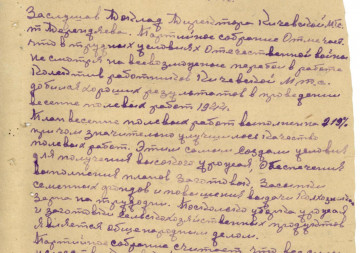 Заслушав Доклад Директора Кичевской МТС
т. партийное собрание отмечает
что в трудных условиях Отечественной войны
не смотря на всевозможные перебои в работе
Коллектив работников Кичевской М.т.с.
добился хороших результатов в проведении
весенне полевых работ 1942г.
План весенне полевых работ выполнен на %
при чем значительно улучшилось качество
полевых работ. Этим самым создали условия
для получения высокого урожая, обеспечения
выполнения планов Заготовок, Засыпки
семенных фондов и повышения выдачи колхозникам
Зерна на трудодни. уборка урожая
и заготовки сельскохозяйственных продуктов
является общенародным делом.
Партийное собрание считает, что